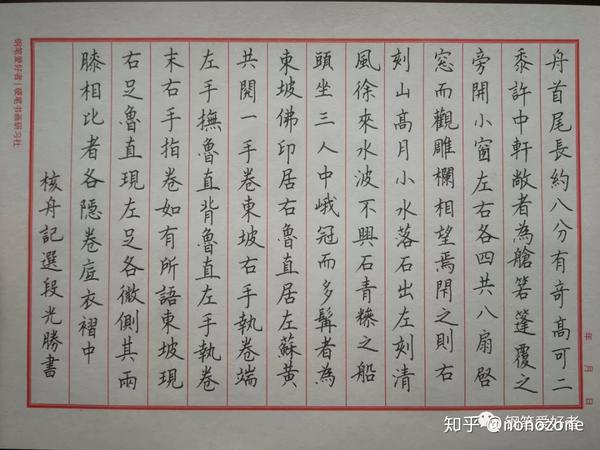 年 月 日
舟首尾長約八分有奇高可二
黍許中軒敞者為艙箬篷覆之
旁開小窗左右各四共八扇啓
窓而觀雕欄相望焉閇之則右
刻山高月小水落石出左刻清
風徐來水波不興石青糝之船
頭坐三人中峨冠而多髯者為
東坡佛印居右魯直居左蘇黃
共閱一手卷東坡右手執卷端
左手撫魯直背魯直左手執卷
末右手指卷如有所語東坡現
右足魯直現左足各微側其兩
膝相比者各隱卷底衣褶中
核舟記選段光勝書
钢笔爱好者|硬笔书画研习社
钢笔爱好者
知乎 @nonozone